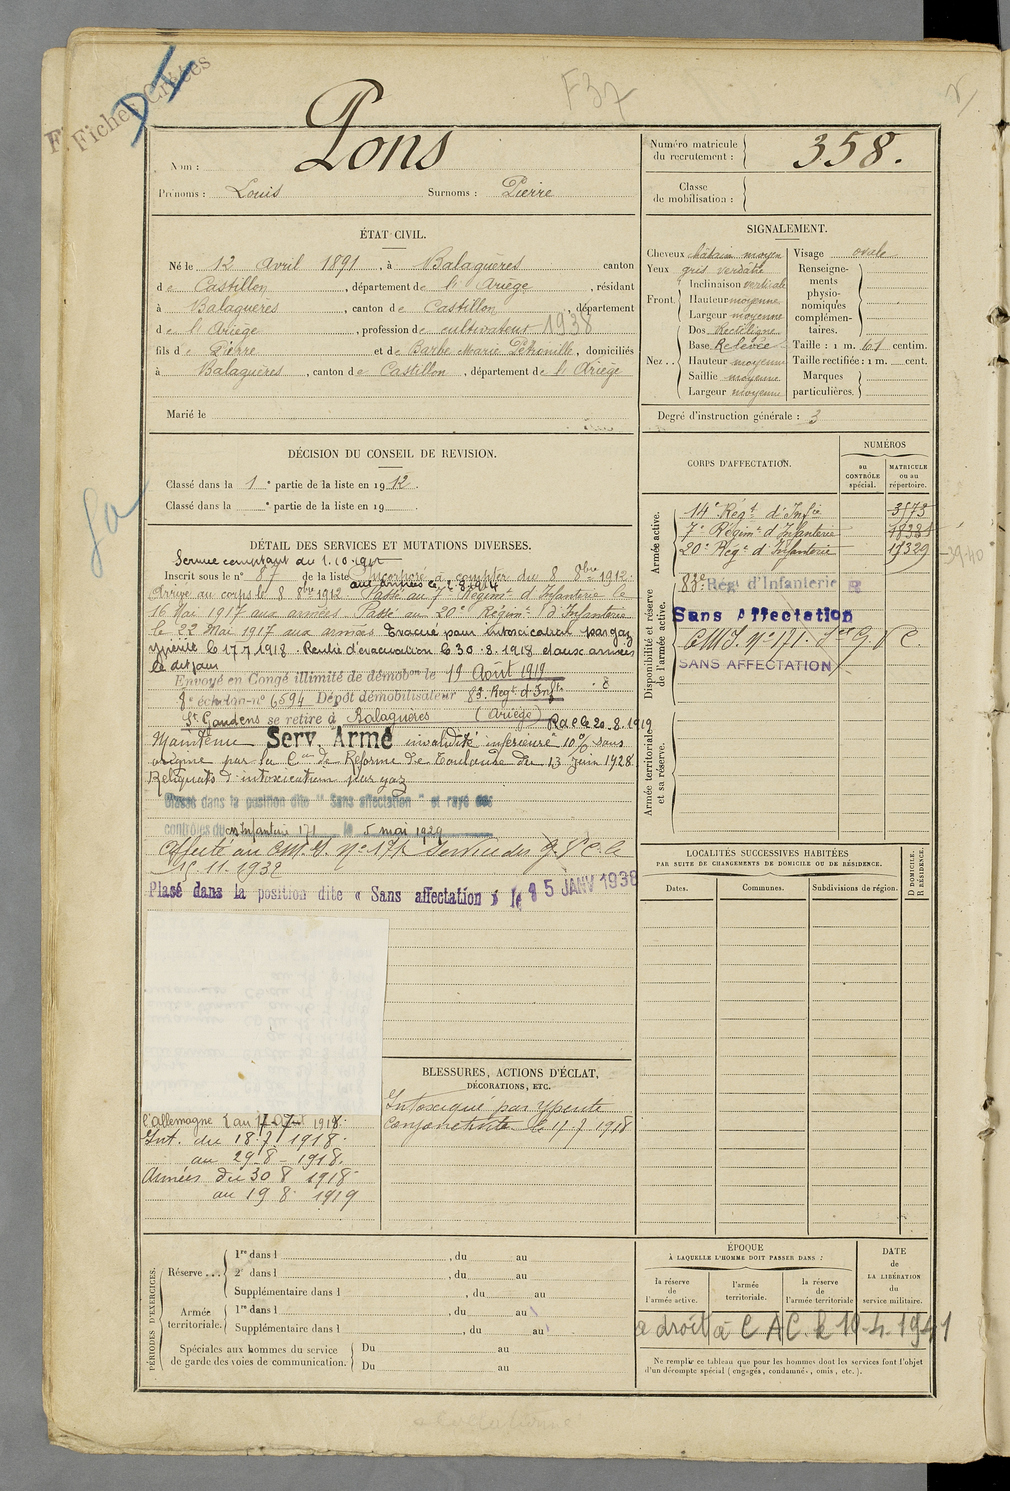 Fiches Créées
D I
F37
Nom : Pons
Prénoms : Louis Surnoms : Pierre
Numéro matricule du recrutement : 358.
Classe de mobilisation :
ÉTAT CIVIL.
Né le 12 Avril 1891, à Balaguères canton
de Castillon, département de l'Ariège, résidant
à Balaguères, canton de Castillon, département
de l'Ariège, profession de cultivateur 1938
fils de Pierre et de Barbe Marie Pétronille, domiciliés
à Balaguères, canton de Castillon, département de l'Ariège
Marié le
SIGNALEMENT.
Cheveux châtain moyen
Yeux gris verdâtre
Front. Inclinaison verticale
Hauteur moyenne
Largeur moyenne
Nez .. Dos Rectiligne
Base Relevée
Hauteur moyenne
Saillie moyenne
Largeur moyenne
Visage ovale
Renseignements physionomiques complémentaires.
Taille : 1 m. 61 centim.
Taille rectifiée : 1 m. cent.
Marques particulières.
Degré d'instruction générale : 3
DÉCISION DU CONSEIL DE REVISION.
Classé dans la 1e partie de la liste en 1912.
Classé dans la e partie de la liste en 19
DÉTAIL DES SERVICES ET MUTATIONS DIVERSES.
Service comptant du 1.10.1912
Inscrit sous le n° 87 de la liste Incorporé à compter du 8 8bre 1912.
aux armées le 2 8 1914
Arrivé au corps le 8 8bre 1912 Passé au 7e Régimt d'Infanterie le
16 Mai 1917 aux armées. Passé au 20e Régimt d'Infanterie
le 22 Mai 1917 aux armées Evacué pour intoxication par gaz
ypérite le 17 7 1918. Rentré d'évacuation le 30.8.1918 et aux armées
le dit jour
Envoyé en Congé illimité de démobon le 19 Août 1919
8e échelon n° 6594 Dépôt démobilisateur 83. Regt d'Inftie
St Gaudens se retire à Balaguères (Ariège) R.d.C le 20.8.1919
Maintenu Serv. Armé invalidité inférieure 10% sans
origine par la Con de Réforme de Toulouse du 13 Juin 1928.
Reliquats d'intoxication par gaz
Classé dans la position dite "Sans affectation" et rayé des
contrôles du cm Infanterie 171 le 5 mai 1929
Affecté au C.M.I. N° 171 Service des G.V.C. le
15.11.1932
Plasé dans la position dite « Sans affectation » le 15 JANV 1938
l'allemagne au 17.7. 1918.
Int. du 18.7 1918.
au 29 8 - 1918.
Armées du 30 8 1918
au 19 8 1919
BLESSURES, ACTIONS D'ÉCLAT,
DÉCORATIONS, ETC.
Intoxiqué par ypérite
Conjonctivite le 17.7.1918
CORPS D'AFFECTATION.
NUMÉROS
DU CONTRÔLE spécial.
MATRICULE ou au répertoire.
Armée active.
14e Régt d'Infie 3573
7e Régimt d'Infanterie
20e Régt d'Infanterie 17329 -39-40
Disponibilité et réserve de l'armée active.
83e Régt d'Infanterie
Sans Affectation
C.M.I. n° 171. G V C.
SANS AFFECTATION
Armée territoriale et sa réserve.
LOCALITÉS SUCCESSIVES HABITÉES
PAR SUITE DE CHANGEMENTS DE DOMICILE OU DE RÉSIDENCE.
Dates. Communes. Subdivisions de région. D DOMICILE. R RÉSIDENCE.
PÉRIODES D'EXERCICES.
Réserve ... 1re dans l , du au
2e dans l , du au
Supplémentaire dans l , du au
Armée territoriale. 1re dans l , du au
Supplémentaire dans l , du au
Spéciales aux hommes du service de garde des voies de communication. Du au
Du au
ÉPOQUE
À LAQUELLE L'HOMME DOIT PASSER DANS :
la réserve de l'armée active.
l'armée territoriale.
la réserve de l'armée territoriale
DATE de LA LIBÉRATION du service militaire.
a droit à C A C. le 10-4-1941
Ne remplir ce tableau que pour les hommes dont les services font l'objet
d'un décompte spécial (engagés, condamnés, omis, etc.).